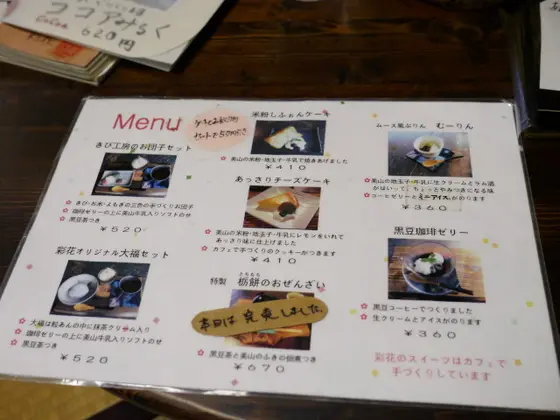 ココアみるく
cocoa 620円
Menu
きび工房のお団子セット
きび・お米・よもぎの三色の手づくりお団子
珈琲ゼリーの上に美山牛乳入りソフトのせ
黒豆茶つき
￥520
彩花オリジナル大福セット
大福は粒あんの中に抹茶クリーム入り
珈琲ゼリーの上に美山牛乳入りソフトのせ
黒豆茶つき
￥520
米粉しふぉんケーキ
美山の米粉・地玉子・牛乳で焼きあげました
￥410
あっさりチーズケーキ
美山の米粉・地玉子・牛乳にレモンをいれて
あっさり味に仕上げました
カフェで手づくりのクッキーがつきます
￥410
特製 栃餅のおぜんざい
とちもち
本日は完売しました。
黒豆茶と美山のふきの佃煮つき
￥670
ムース風ぷりん むーりん
美山の地玉子・牛乳に生クリームとラム酒
がはいって、ちょっとやみつきになる味
コーヒーゼリーとミニアイスがのります
￥360
黒豆珈琲ゼリー
黒豆コーヒーでつくりました
生クリームとアイスがのります
￥360
彩花のスイーツはカフェで
手づくりしています